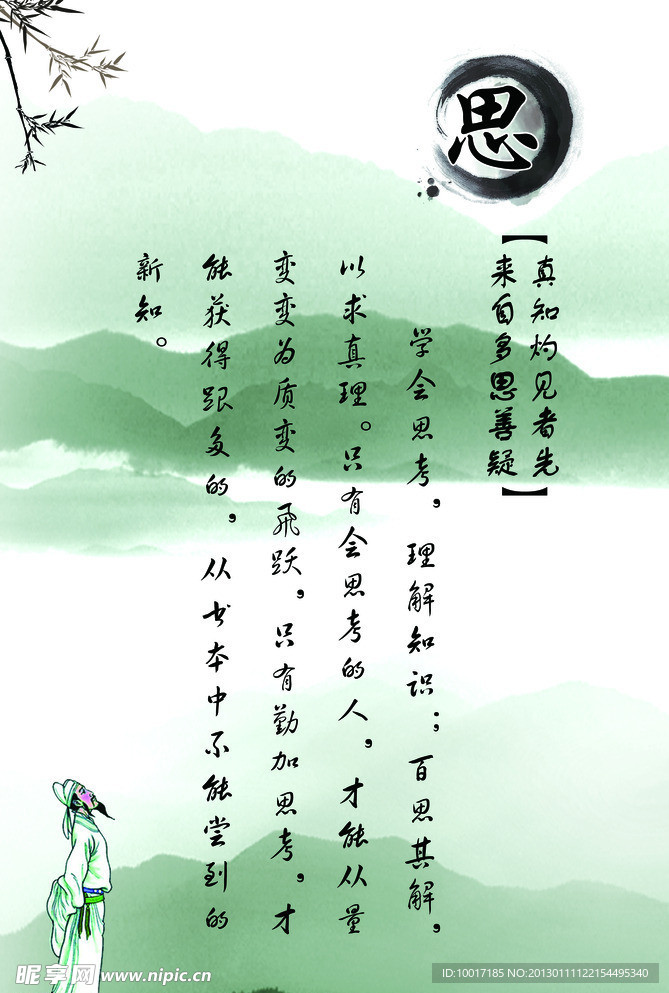 思
【真知灼见者先
来自多思善疑】
学会思考，理解知识；百思其解，
以求真理。只有会思考的人，才能从量
变变为质变的飞跃，只有勤加思考，才
能获得跟多的，从书本中不能尝到的
新知。
昵享网 www.nipic.cn
ID:10017185 NO:20130111122154495340